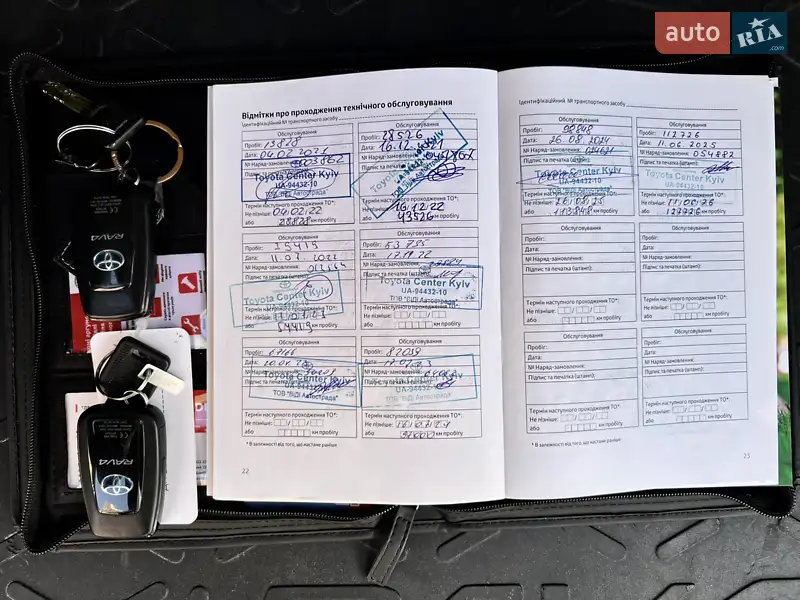 auto RIA .com
Відмітки про проходження технічного обслуговування
Ідентифікаційний № транспортного засобу
Обслуговування
Пробіг: 13828
Дата: 04.02.2021
№ Наряд-замовлення:
Підпис та печатка (штамп):
Toyota Center Kyiv
UA-94432-10
ТОВ "ВіДі Автострада"
Термін наступного проходження ТО*:
Не пізніше: 04.02.22
або 28828 км пробігу
Обслуговування
Пробіг: 28526
Дата: 16.12.2021
№ Наряд-замовлення:
Підпис та печатка
Термін наступного проходження ТО*:
Не пізніше: 16.12.22
або 43526 км пробігу
Обслуговування
Пробіг: 35419
Дата: 11.07.2022
№ Наряд-замовлення:
Підпис та печатка (штамп):
Toyota Center Kyiv
UA-94432-10
км пробігу
Обслуговування
Пробіг: 53795
Дата:
№ Наряд-замовлення:
Підпис та печатка (штамп):
Toyota Center Kyiv
UA-94432-10
ТОВ "ВіДі Автострада"
Термін наступного проходження ТО*:
Не пізніше:
або км пробігу
Обслуговування
Пробіг:
Дата:
№ Наряд-замовлення:
Підпис
Toyota Center Kyiv
UA-94432-10
ТОВ "ВіДі Автострада"
Термін наступного проходження ТО*:
Не пізніше:
або км пробігу
Обслуговування
Пробіг: 82039
Дата:
№ Наряд-замовлення:
Підпис
Toyota Center Kyiv
UA-94432-10
ТОВ "ВіДі Автострада"
Термін наступного проходження ТО*:
Не пізніше:
або 97000 км пробігу
* В залежності від того, що настане раніше
22
Ідентифікаційний № транспортного засобу
Обслуговування
Пробіг: 98848
Дата: 26.08.2024
№ Наряд-замовлення:
Підпис та печатка (штамп):
Toyota Center Kyiv
UA-94432-10
ТОВ "ВіДі Автострада"
Термін наступного проходження ТО*:
Не пізніше: 26.08.25
або 113848 км пробігу
Обслуговування
Пробіг: 112726
Дата: 11.06.2025
№ Наряд-замовлення: 054882
Підпис та печатка (штамп):
Toyota Center Kyiv
UA-94432-10
Термін наступного проходження ТО*:
Не пізніше: 11.06.26
або 127726 км пробігу
Обслуговування
Пробіг:
Дата:
№ Наряд-замовлення:
Підпис та печатка (штамп):
Термін наступного проходження ТО*:
Не пізніше:
або км пробігу
Обслуговування
Пробіг:
Дата:
№ Наряд-замовлення:
Підпис та печатка (штамп):
Термін наступного проходження ТО*:
Не пізніше:
або км пробігу
Обслуговування
Пробіг:
Дата:
№ Наряд-замовлення:
Підпис та печатка (штамп):
Термін наступного проходження ТО*:
Не пізніше:
або км пробігу
Обслуговування
Пробіг:
Дата:
№ Наряд-замовлення:
Підпис та печатка (штамп):
Термін наступного проходження ТО*:
Не пізніше:
або км пробігу
* В залежності від того, що настане раніше
23
RAV4
RAV4